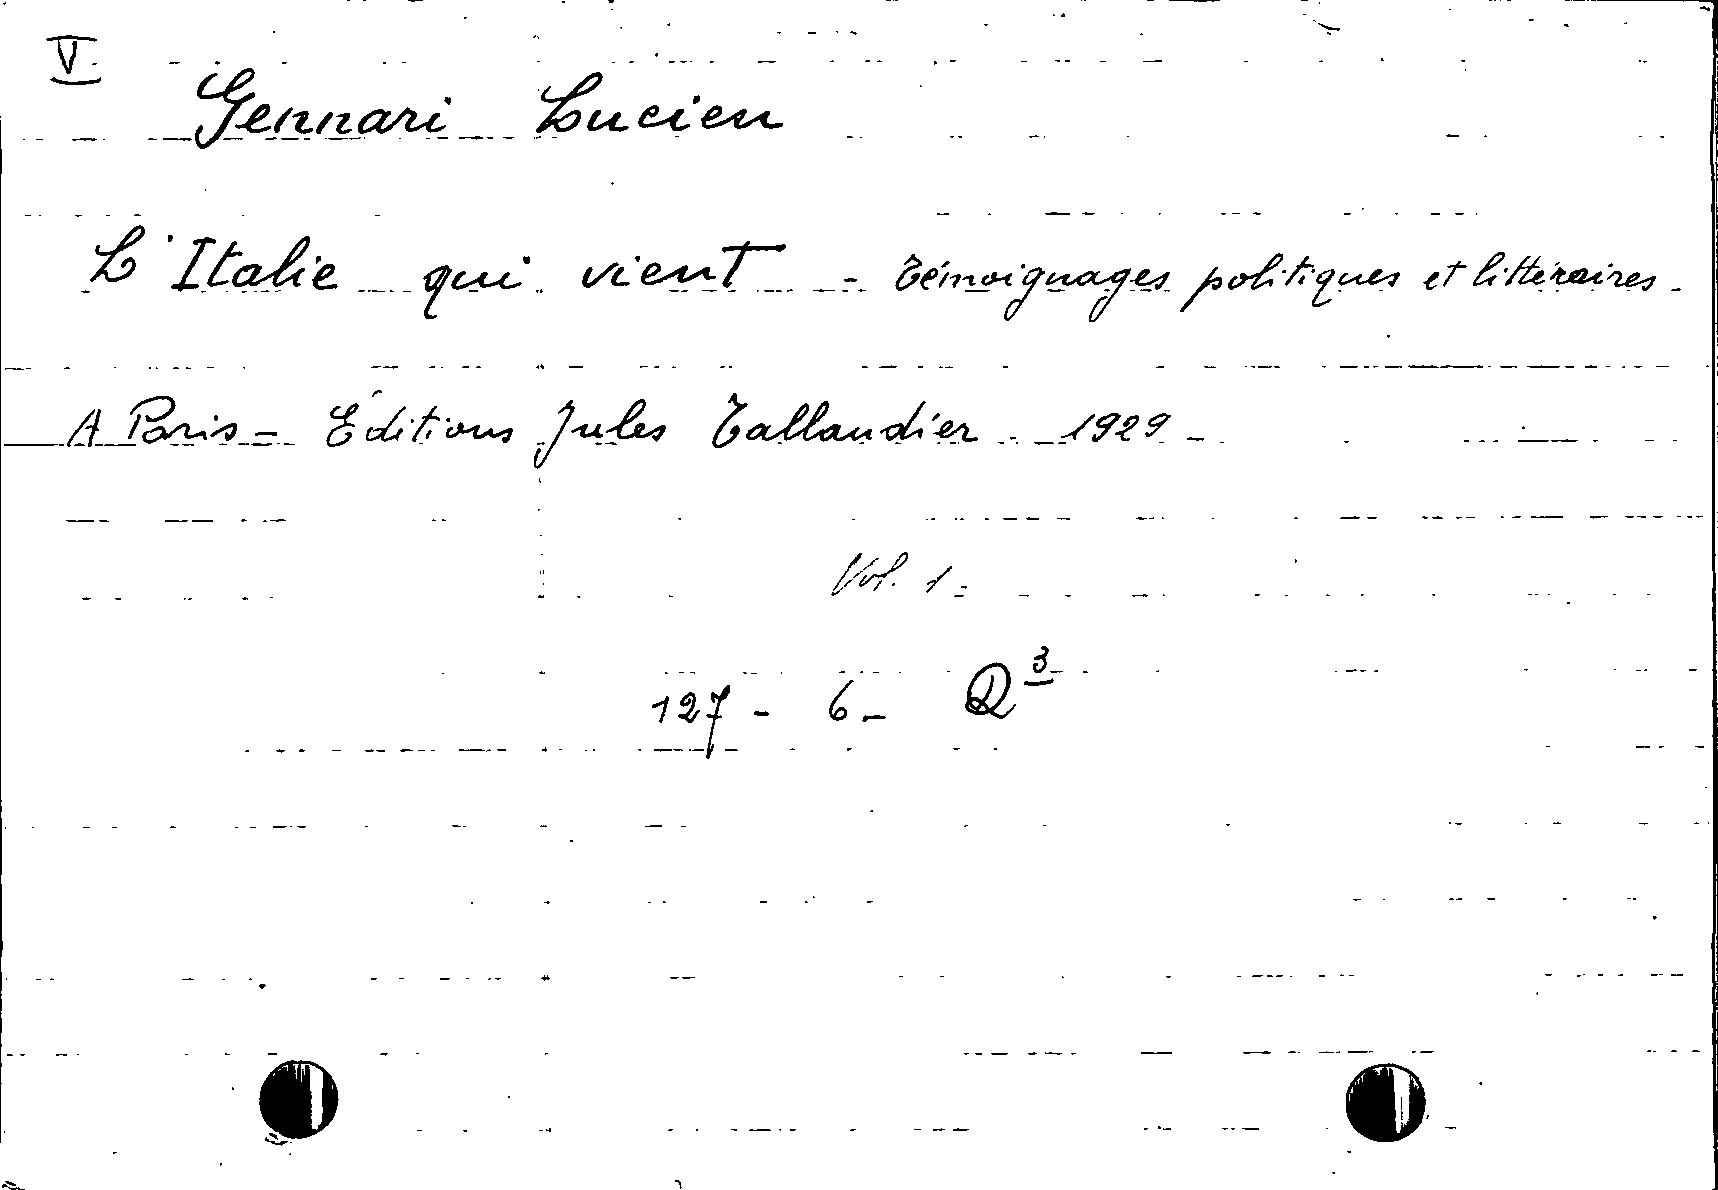 V
Gennari Lucien
L'Italie qui vient - Témoignages politiques et littéraires -
A Paris - Éditions Jules Tallandier 1929 -
Vol. 1 -
127 - 6 - Q³